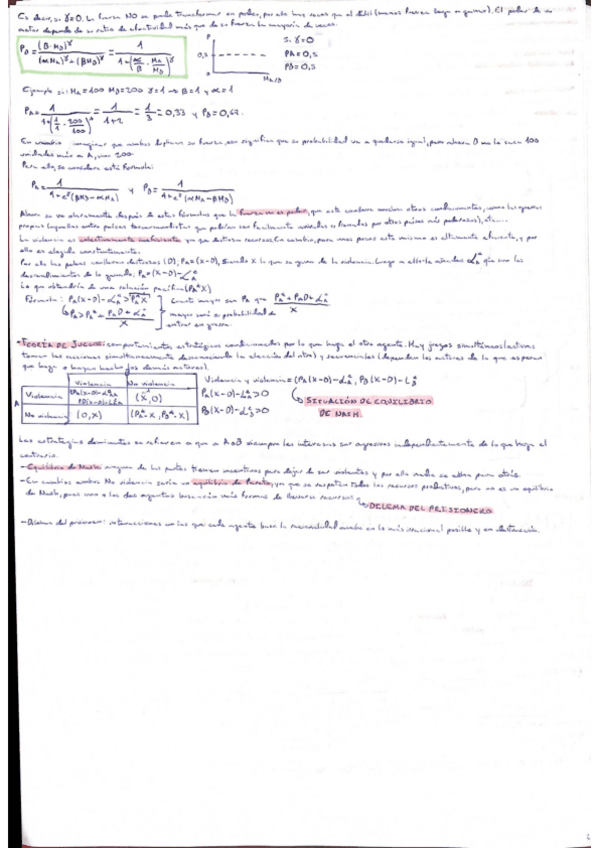 Es decir, si γ=0. La fuerza NO se puede transformar en poder, por ello hay veces que el débil (menos fuerza) luego gana. El poder de un
actor depende de su ratio de efectividad más que de su fuerza la mayoría de veces.
P_B = (β·M_B)^γ / ((αM_A)^γ + (βM_B)^γ) = 1 / (1+(α/β · M_A/M_B)^γ)
P
0,5
0
M_A/B
Si γ=0
PA=0,5
PB=0,5
Ejemplo si: M_A=100 M_B=200 γ=1 → β=1 y α=1
P_A = 1 / (1+(1/1 · 200/100)^1) = 1 / (1+2) = 1/3 = 0,33 y P_B=0,67.
En cambio imaginar que ambos duplican su fuerza, eso significa que su probabilidad va a quedarse igual, pero ahora B no le saca 100
unidades más a A, sino 200
Para ello, se considera esta fórmula:
P_A = 1 / (1+e^γ(βM_B-αM_A)) y P_B = 1 / (1+e^γ(αM_A-βM_B))
Ahora se ve claramente después de estas fórmulas que la fuerza no es poder, que este conlleva muchos otros condicionantes, como las guerras
proxys (aquellas entre países tercermundistas que podrían ser fácilmente evitadas o frenadas por otros países más poderosos), etc...
La violencia es colectivamente ineficiente ya que destruye recursos. En cambio, para unas pocas este mismo es altamente eficiente, y por
ello es elegido constantemente.
Por ello las peleas conllevan destrozos (D); P_A=(X-D), siendo X lo que se gana de la violencia. Luego a ello le añades L_A^e que son los
descendimientos de la guerra; P_A=(X-D)-L_A^e
Lo que obtendría de una solución pacífica (P_A^*X)
Fórmula: P_A(X-D)-L_A^e > P_A^*X
P_A > P_A^* + (P_A D + L_A^e) / X
Cuanto mayor sea P_A que P_A^* + P_A D + L_A^e / X
mayor será la probabilidad de
entrar en guerra.
- TEORÍA DE JUEGOS: comportamientos estratégicos condicionados por lo que haga el otro agente. Hay juegos simultáneos (actores
toman las acciones simultáneamente desconociendo la elección del otro) y secuenciales (dependen los actores de lo que esperan
que haga o hayan hecho los demás actores).
Violencia No violencia
A Violencia P_A(X-D)-L_A^e P_B(X-D)-L_B^e (X, 0)
No violencia (0, X) (P_A^*·X, P_B^*·X)
Violencia y violencia = (P_A(X-D)-L_A^e, P_B(X-D)-L_B^e)
P_A(X-D)-L_A^e > 0
P_B(X-D)-L_B^e > 0
SITUACIÓN DE EQUILIBRIO
DE NASH.
Las estrategias dominantes se refieren a que A o B siempre les interesa ser agresivos independientemente de lo que haga el
contrario.
- Equilibrio de Nash: ninguna de las partes tienen incentivos para dejar de ser violentos y por ello nadie se echa para atrás
- En cambio, ambos No violencia sería un equilibrio de Pareto, ya que se respetan todos los recursos productivos, pero no es un equilibrio
de Nash, pues uno o los dos agentes buscarían más formas de llevarse recursos
DILEMA DEL PRISIONERO
- Dilema del prisionero: interacciones en las que cada agente busca la racionalidad acaba en lo más irracional posible y en destrucción.